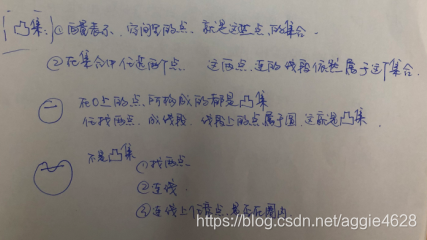 凸集: ①向量表示、空间里的点、就是这些点的集合.
②在集合中任意两个点 这两点连的线段依然属于这个集合.
在O上的点,所构成的都是凸集
任找两点、成线段、线段上的点属于圆、这就是凸集.
不是凸集
①找两点
②连线
③连线上任意点是否在圈内
https://blog.csdn.net/aggie4628